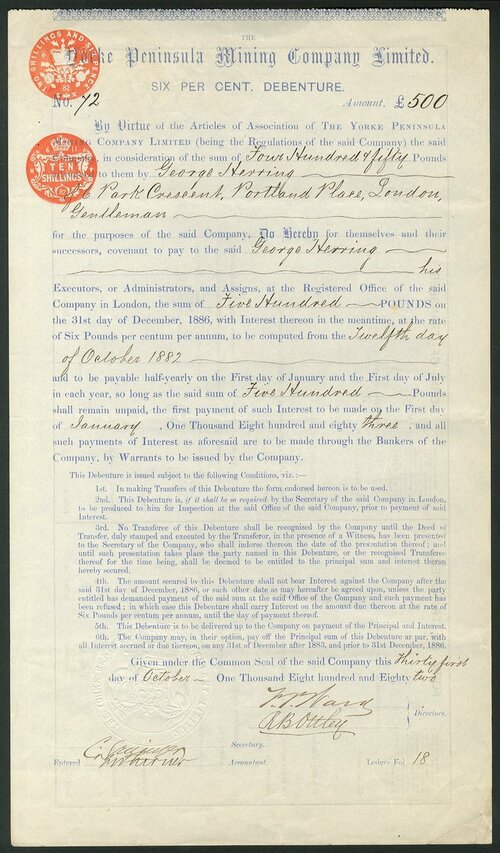 THE
Yorke Peninsula Mining Company Limited.
SIX PER CENT. DEBENTURE.
TWO SHILLINGS AND SIXPENCE
No. 72 Amount, £500
By Virtue of the Articles of Association of THE YORKE PENINSULA
MINING COMPANY LIMITED (being the Regulations of the said Company) the said
Company, in consideration of the sum of Four Hundred & fifty Pounds
TEN
SHILLINGS
to them by George Herring
Park Crescent, Portland Place, London,
Gentleman
for the purposes of the said Company, Do Hereby for themselves and their
successors, covenant to pay to the said George Herring
his
Executors, or Administrators, and Assigns, at the Registered Office of the said
Company in London, the sum of Five Hundred POUNDS on
the 31st day of December, 1886, with Interest thereon in the meantime, at the rate
of Six Pounds per centum per annum, to be computed from the Twelfth day
of October 1882
and to be payable half-yearly on the First day of January and the First day of July
in each year, so long as the said sum of Five Hundred Pounds
shall remain unpaid, the first payment of such Interest to be made on the First day
of January, One Thousand Eight hundred and eighty three, and all
such payments of Interest as aforesaid are to be made through the Bankers of the
Company, by Warrants to be issued by the Company.
This Debenture is issued subject to the following Conditions, viz.:—
1st. In making Transfers of this Debenture the form endorsed hereon is to be used.
2nd. This Debenture is, if it shall be so required by the Secretary of the said Company in London,
to be produced to him for Inspection at the said Office of the said Company, prior to payment of said
Interest.
3rd. No Transferee of this Debenture shall be recognised by the Company until the Deed of
Transfer, duly stamped and executed by the Transferor, in the presence of a Witness, has been presented
to the Secretary of the Company, who shall indorse thereon the date of the presentation thereof; and
until such presentation takes place the party named in this Debenture, or the recognised Transferee
thereof for the time being, shall be deemed to be entitled to the principal sum and interest thereon
hereby secured.
4th. The amount secured by this Debenture shall not bear Interest against the Company after the
said 31st day of December, 1886, or such other date as may hereafter be agreed upon, unless the party
entitled has demanded payment of the said sum at the said Office of the Company and such payment has
been refused; in which case this Debenture shall carry Interest on the amount due thereon at the rate of
Six Pounds per centum per annum, until the day of payment thereof.
5th. This Debenture is to be delivered up to the Company on payment of the Principal and Interest.
6th. The Company may, in their option, pay off the Principal Sum of this Debenture at par, with
all Interest accrued or due thereon, on any 31st December after 1883, and prior to 31st December, 1886.
Given under the Common Seal of the said Company this thirty first
day of October One Thousand Eight hundred and Eighty two
Ward
Directors.
A B Ottley
Secretary.
Entered Accountant. Ledger Fol 18